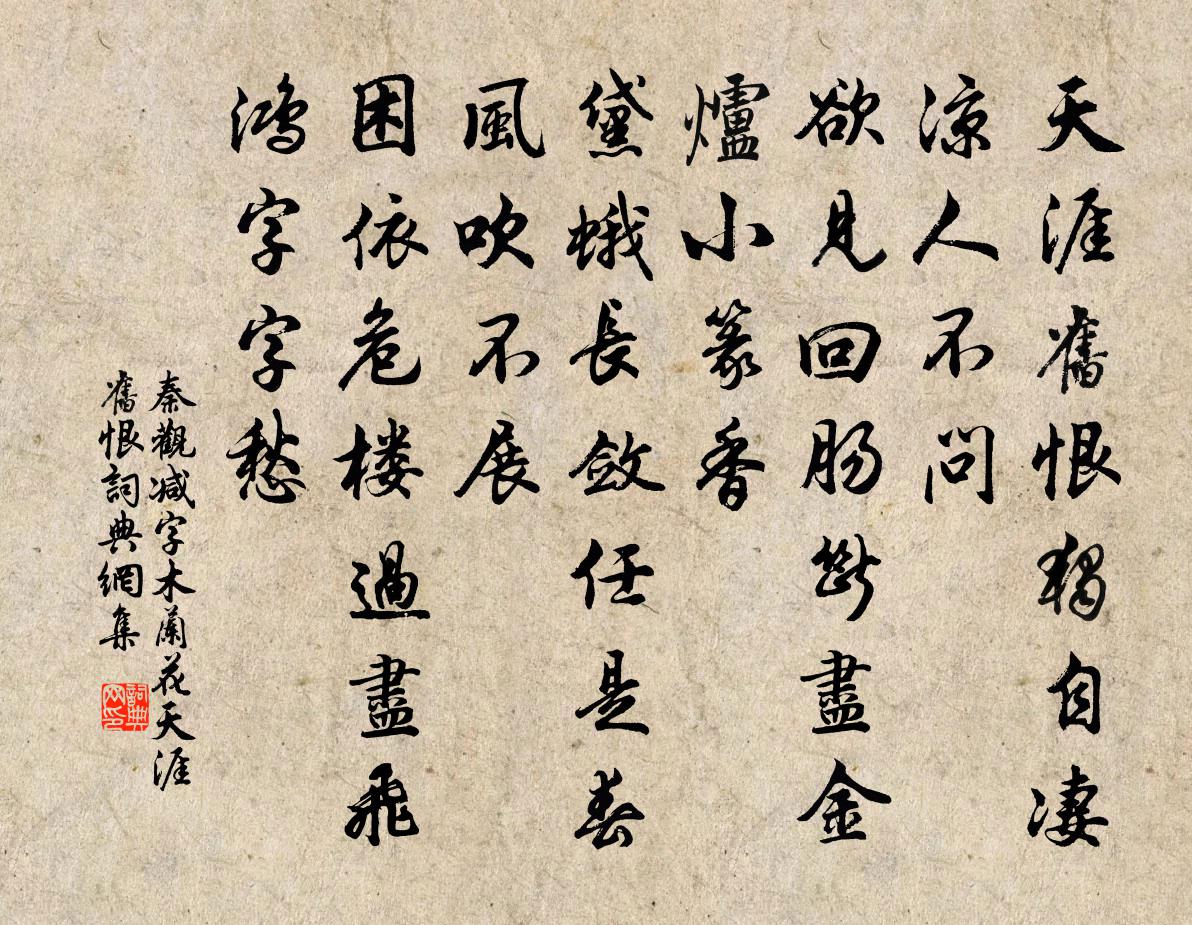 天涯舊恨獨自淒
涼人不問
欲見回腸斷盡金
爐小篆香
黛蛾長斂任是春
風吹不展
困依危樓過盡飛
鴻字字愁
秦觀減字木蘭花天涯
舊恨詞典網集
詞典
网印